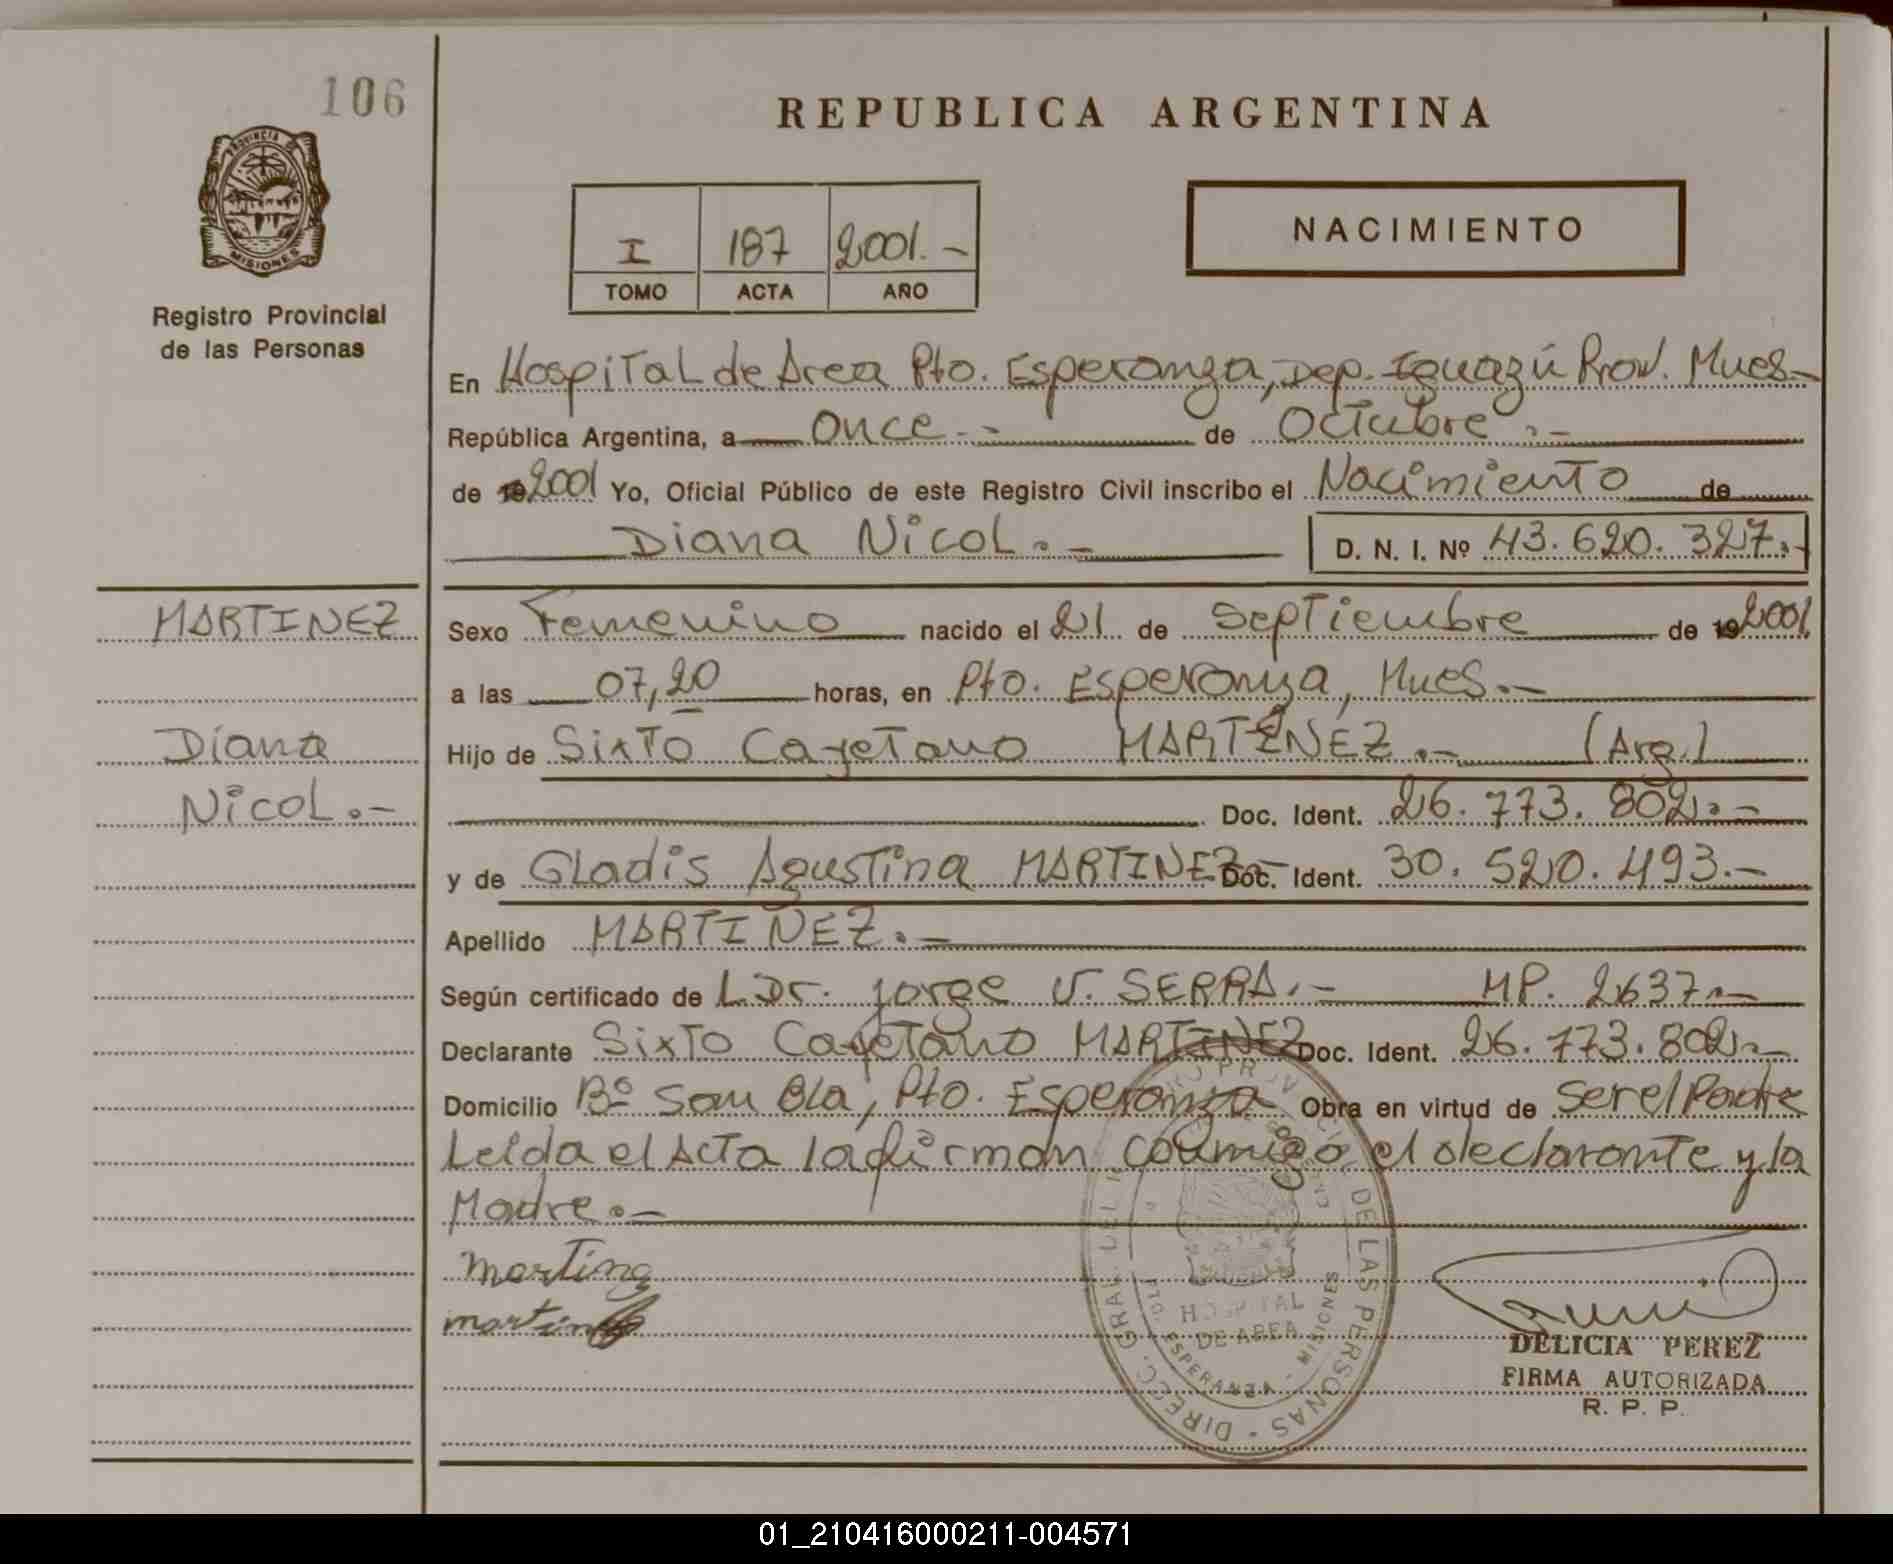 106
PROVINCIA DE
MISIONES
Registro Provincial
de las Personas
REPUBLICA ARGENTINA
I 187 2001.-
TOMO ACTA AÑO
NACIMIENTO
En Hospital de Area Pto. Esperanza, Dep. Iguazú Prov. Mnes.-
República Argentina, a Once.- de Octubre.-
de 2001 Yo, Oficial Público de este Registro Civil inscribo el Nacimiento de
Diana Nicol.- D. N. I. Nº 43.620.327.-
MARTINEZ
Diana
Nicol.-
Sexo Femenino nacido el 21 de Septiembre de 19 2001.
a las 07,20 horas, en Pto. Esperanza, Mnes.-
Hijo de Sixto Cayetano MARTINEZ.- (Arg.)
Doc. Ident. 26.773.802.-
y de Gladis Agustina MARTINEZ.- Doc. Ident. 30.520.493.-
Apellido MARTINEZ.-
Según certificado de L.Dr. Jorge V. SERRA.- MP. 2637.-
Declarante Sixto Cayetano MARTINEZ Doc. Ident. 26.773.802.-
Domicilio Bº San Bla, Pto. Esperanza Obra en virtud de ser el Padre
Leida el Acta la firman conmigo el declarante y la
Madre.-
DIRECC. GRAL. DEL PROV. DE LAS PERSONAS
HOSPITAL
DE AREA
PTO. ESPERANZA - MISIONES
DELICIA PEREZ
FIRMA AUTORIZADA
R. P. P.
01_210416000211-004571